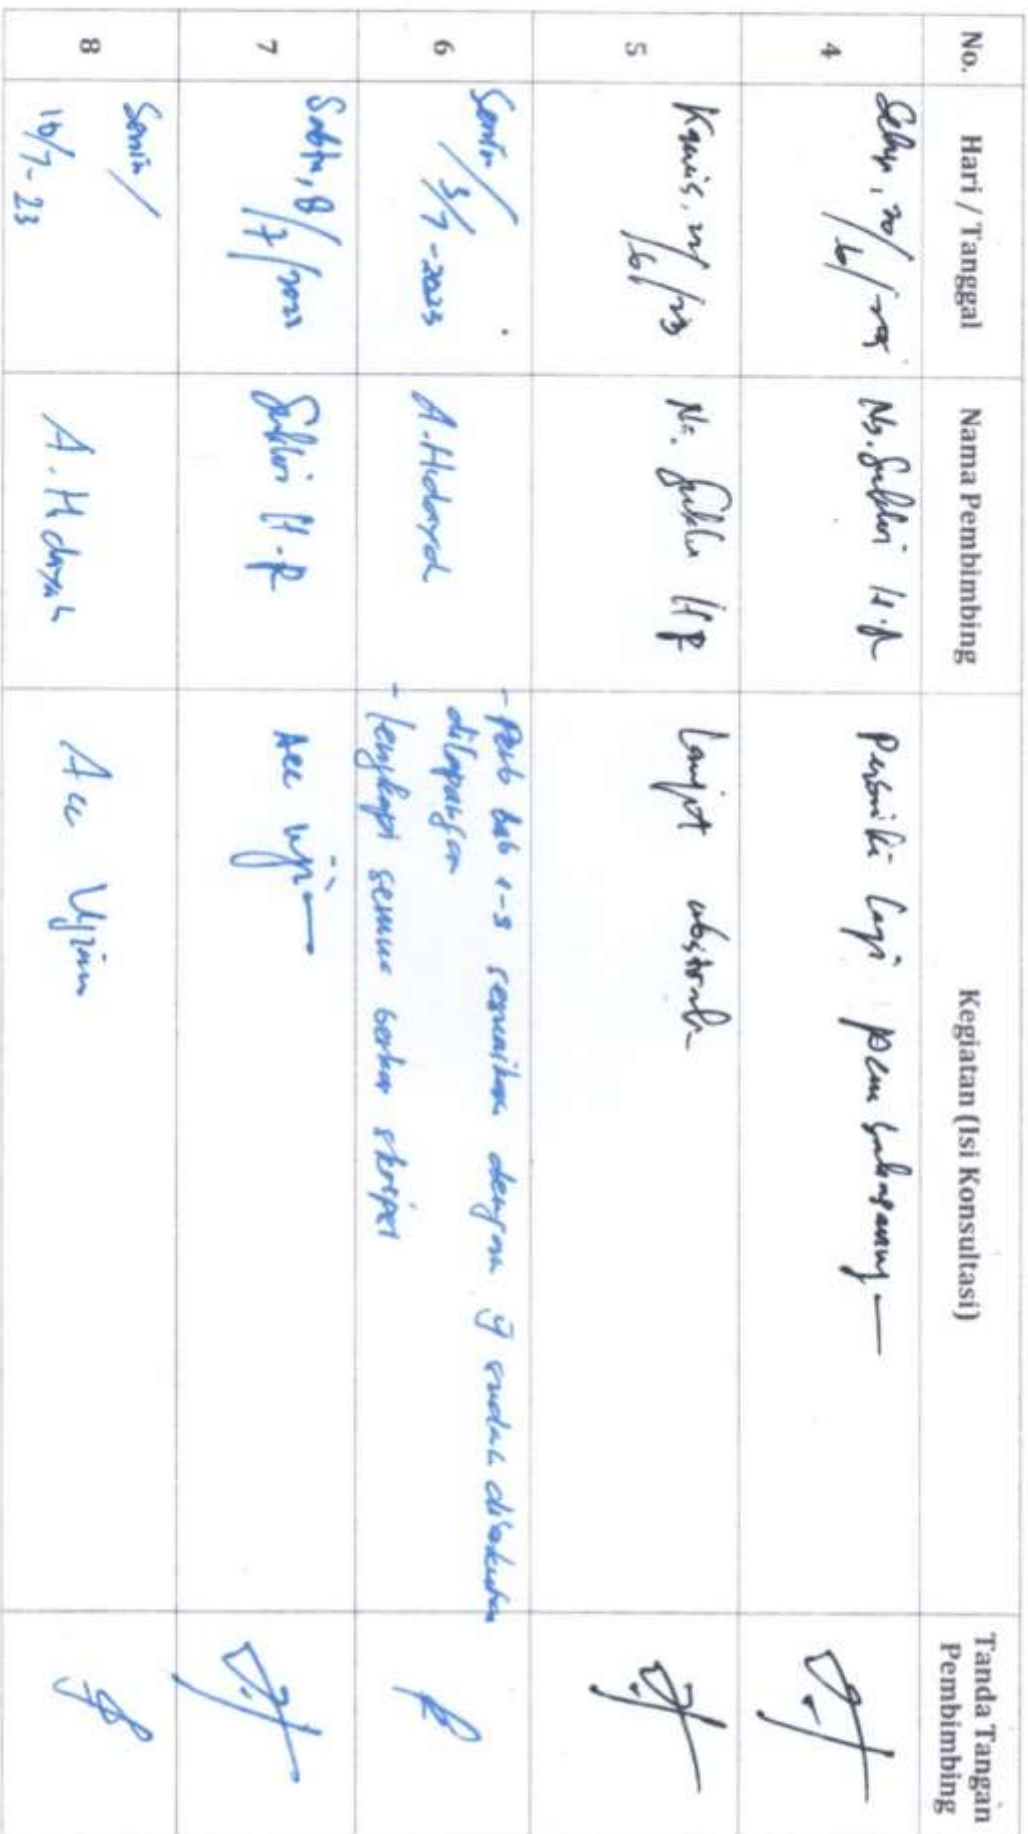 No. Hari / Tanggal Nama Pembimbing Kegiatan (Isi Konsultasi) Tanda Tangan
Pembimbing
4 Ns. Sukhri H.R Perbaiki lagi pembahasannya
5 Kamis, 22/6/23 Ns. Sukhri H R Lanjut abstrak
6 Senin/ 3/7-2023 A. Hidayah - Perb bab 1-3 sesuaikan dengan yg sudah dilakukan
dilapangan
- lengkapi semua berkas skripsi
7 Sabtu, 8/7/2023 Sukhri H.R Acc ujian
8 Senin/ A. Hidayah Acc Ujian
10/7-23